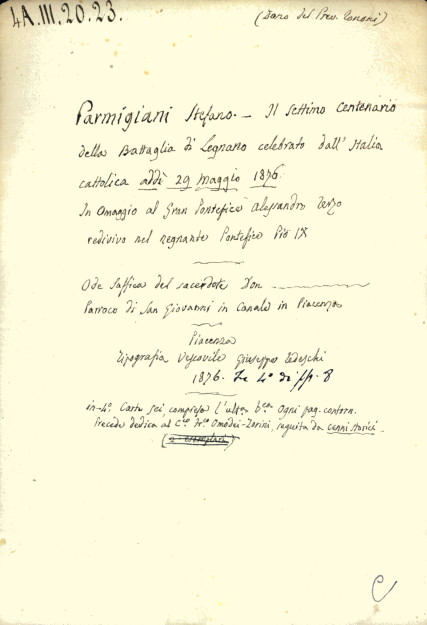 4A.III.20.23.
(Dono del Prev. Tononi)
Parmigiani Stefano. — Il settimo centenario
della Battaglia di Legnano celebrato dall'Italia
cattolica addì 29 maggio 1876.
In omaggio al Gran Pontefice Alessandro Terzo
redivivo nel regnante Pontefice Pio IX
Ode Saffica del sacerdote Don
Parroco di San Giovanni in Canale in Piacenza
Piacenza
Tipografia Vescovile Giuseppe Tedeschi
1876. In 4° di pp. 8
in-4° Carte sei, compresa l'ult. b.ca Ogni pag. contorn.
Precede dedica al C.te Fr.co Omodei-Zorini, seguita da cenni storici.
(2 esemplari)
C